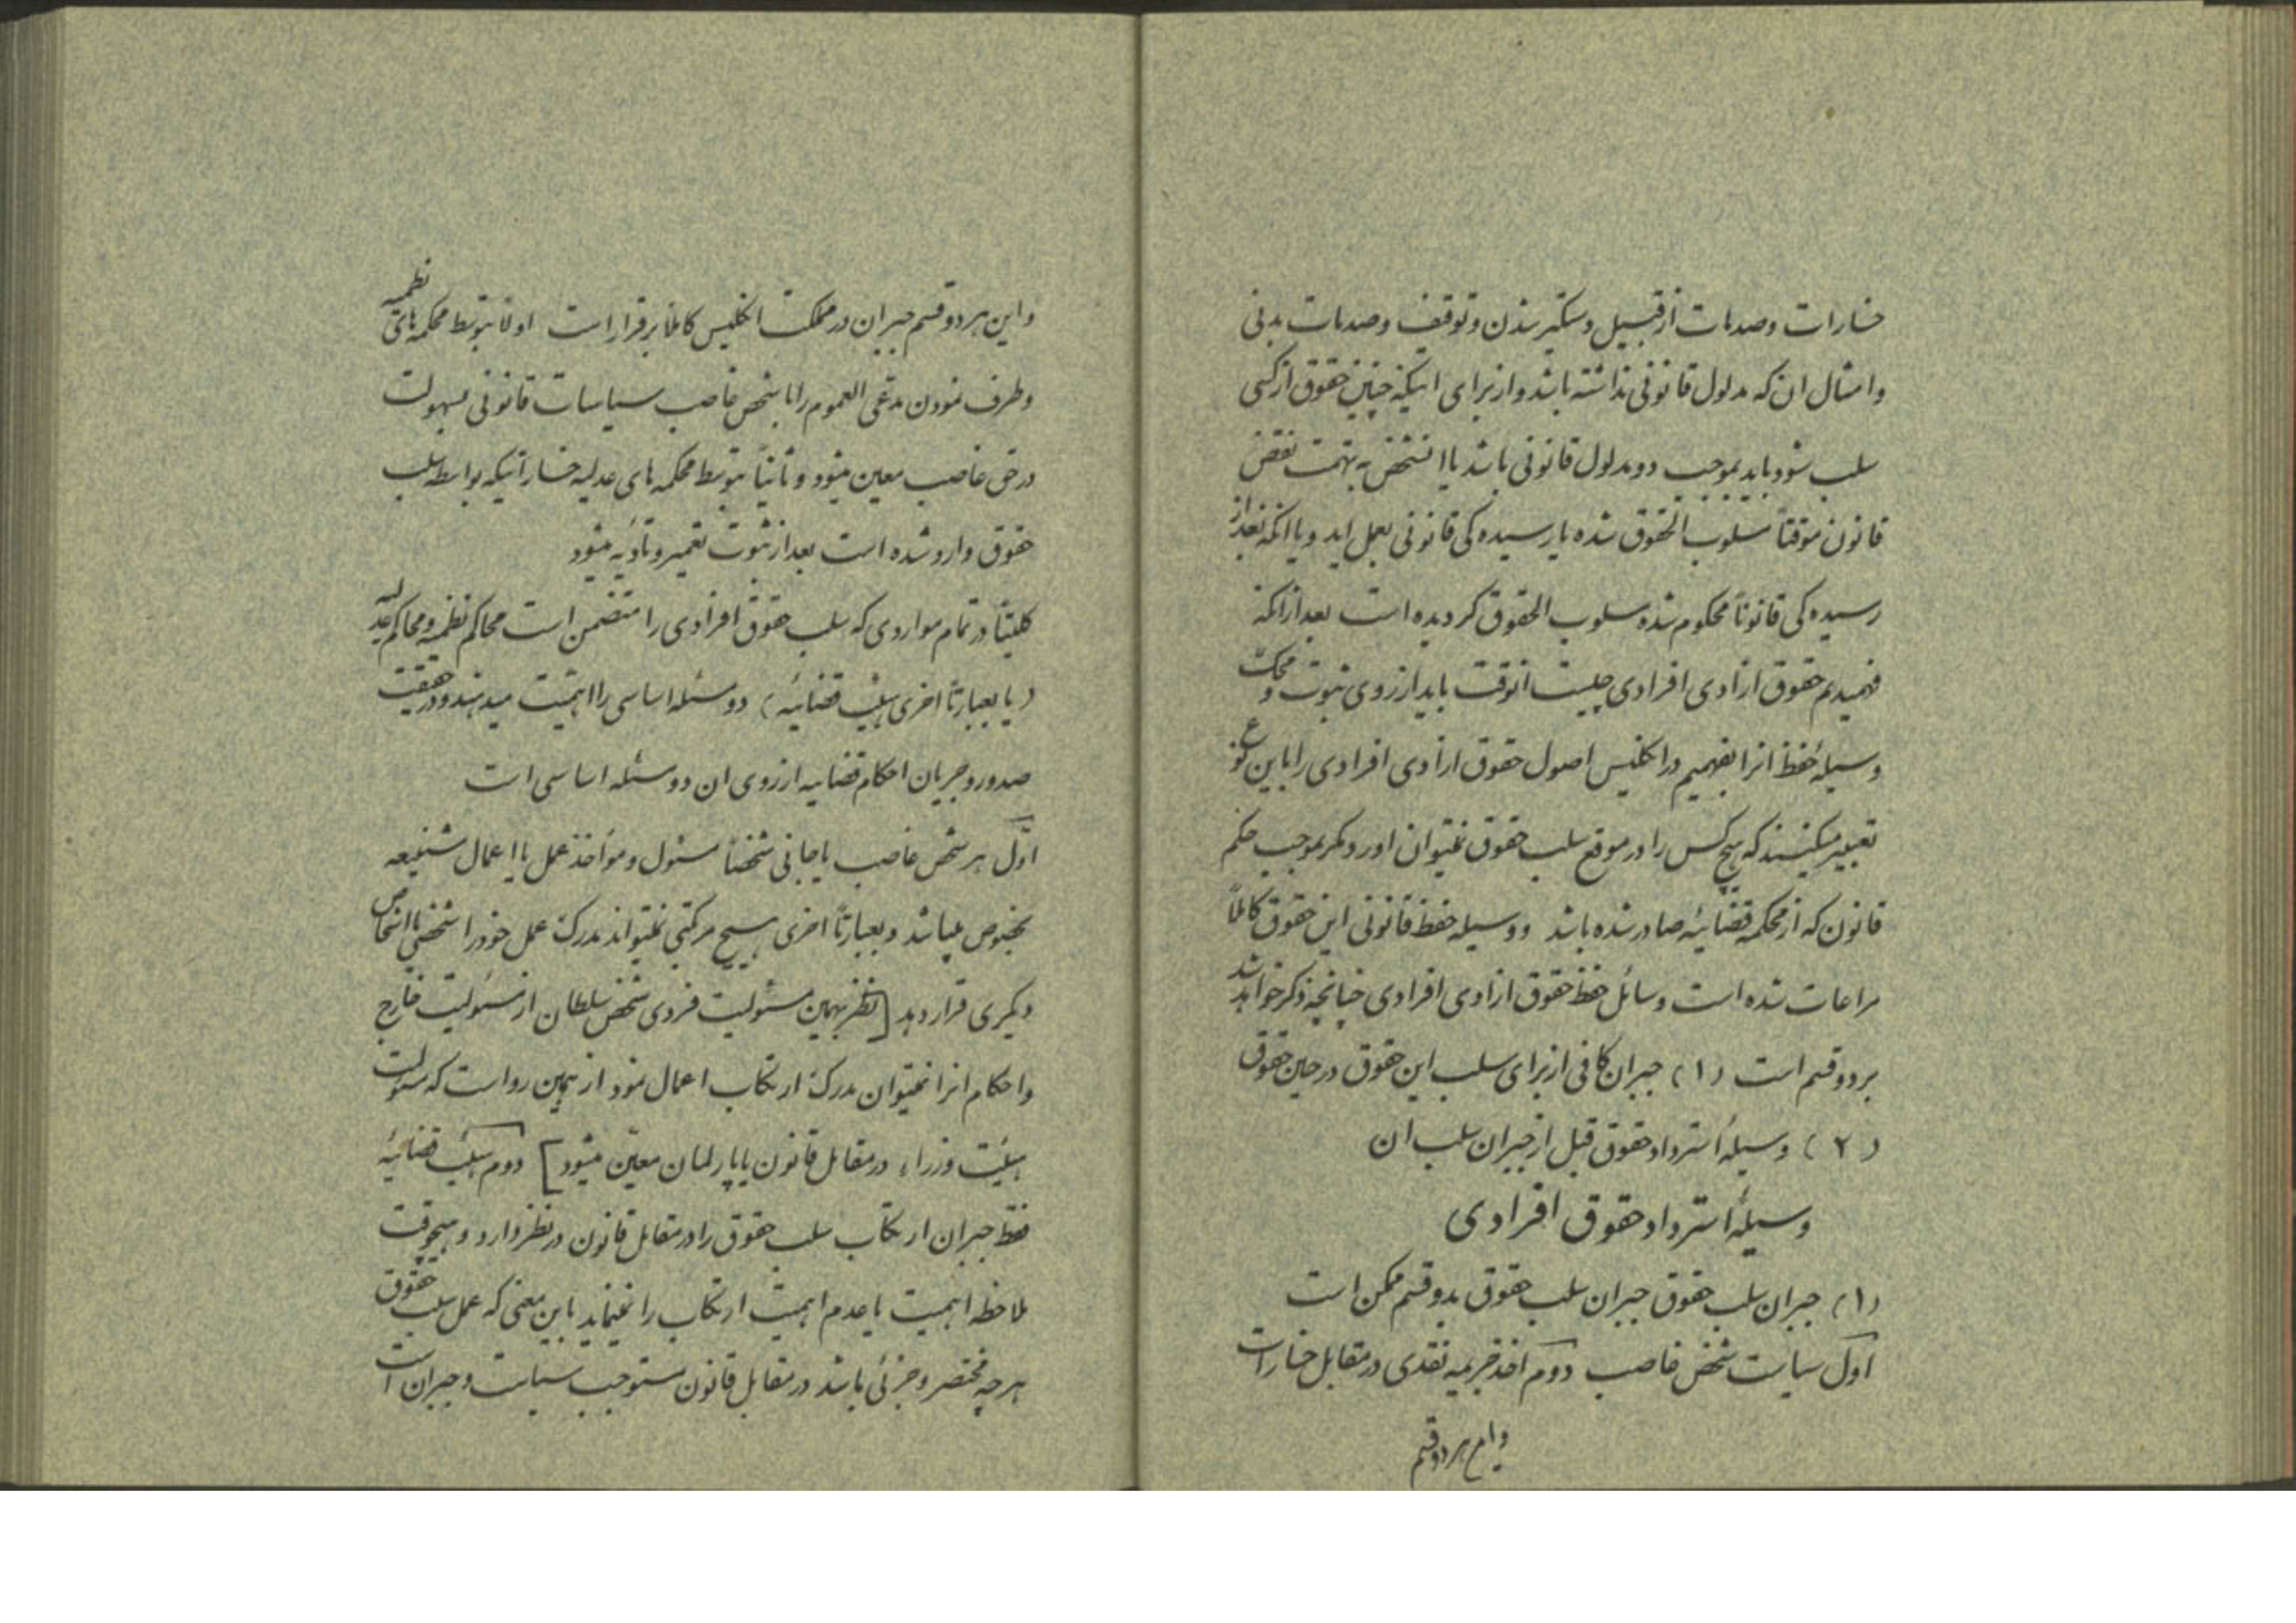 خسارات و صدمات از قبیل دستگیر شدن و توقیف و صدمات بدنی
و امثال ان که مدلول قانونی نداشته باشد و از برای اینکه چنین حقوق از کسی
سلب شود باید بموجب دو مدلول قانونی باشد یا انشخص به تهمت نقض
قانون موقتاً مسلوب الحقوق شده یا رسیده کی قانونی بعمل اید و یا انکه بعد از
رسیده کی قانوناً محکوم شده مسلوب الحقوق گردیده است بعد از انکه
فهمیدیم حقوق ازادی افرادی چیست انوقت باید از روی ثبوت و محک
وسیلهٔ حفظ انرا بفهمیم در انگلیس اصول حقوق ازادی افرادی را باین نوع
تعبیر میکنند که هیچ کس را در موقع سلب حقوق نمیتوان اورد مگر بموجب حکم
قانون که از محکمه قضائیه صادر شده باشد و وسیله حفظ قانونی این حقوق کاملاً
مراعات شده است وسائل حفظ حقوق ازادی افرادی چنانچه ذکر خواهد شد
بر دو قسم است (۱) جبران کافی از برای سلب این حقوق در حین حقوق
(۲) وسیلهٔ استرداد حقوق قبل از جبران سلب ان
وسیلهٔ استرداد حقوق افرادی
(۱) جبران سلب حقوق جبران سلب حقوق بدو قسم ممکن است
اول سیاست شخص غاصب دوم اخذ جریمه نقدی در مقابل خسارات
هر دو قسم
و این هر دو قسم جبران در مملکت انگلیس کاملاً برقرار است اولاً بتوسط محکمه های نظمیه
و طرف نمودن مدعی العموم را با شخص غاصب سیاسات قانونی بسهولت
در حق غاصب معین میشود و ثانیاً بتوسط محکمه های عدلیه خساراتیکه بواسطه سلب
حقوق وارد شده است بعد از ثبوت تعمیر و تأدیه میشود
کلیتاً در تمام مواردی که سلب حقوق افرادی را متضمن است محاکم نظمیه و محاکم عدلیه
(یا بعبارتاً اخری هیئت قضائیه) دو مسئله اساسی را اهمیت میدهند و در حقیقت
صدور و جریان احکام قضاییه از روی ان دو مسئله اساسی است
اوّل هر شخص غاصب یا جانی شخصاً مسئول و مواخذ عمل یا اعمال شنیعه
بخصوص میباشد و بعبارتاً اخری هیچ مرتکبی نمیتواند مدرک عمل خود را شخص یا اشخاص
دیگری قرار دهد [نظر بهمین مسئولیت فردی شخص سلطان از مسئولیت خارج
و احکام انرا نمیتوان مدرک ارتکاب اعمال نمود از همین رو است که مسئولیت
هیئت وزراء در مقابل قانون یا پارلمان معیّن میشود] دوم هیئت قضائیه
فقط جبران ارتکاب سلب حقوق را در مقابل قانون در نظر دارد و هیچوقت
ملاحظه اهمیت یا عدم اهمیت ارتکاب را نمینماید باین معنی که عمل سلب حقوق
هر چه مختصر و جزئی باشد در مقابل قانون مستوجب سیاست و جبران است